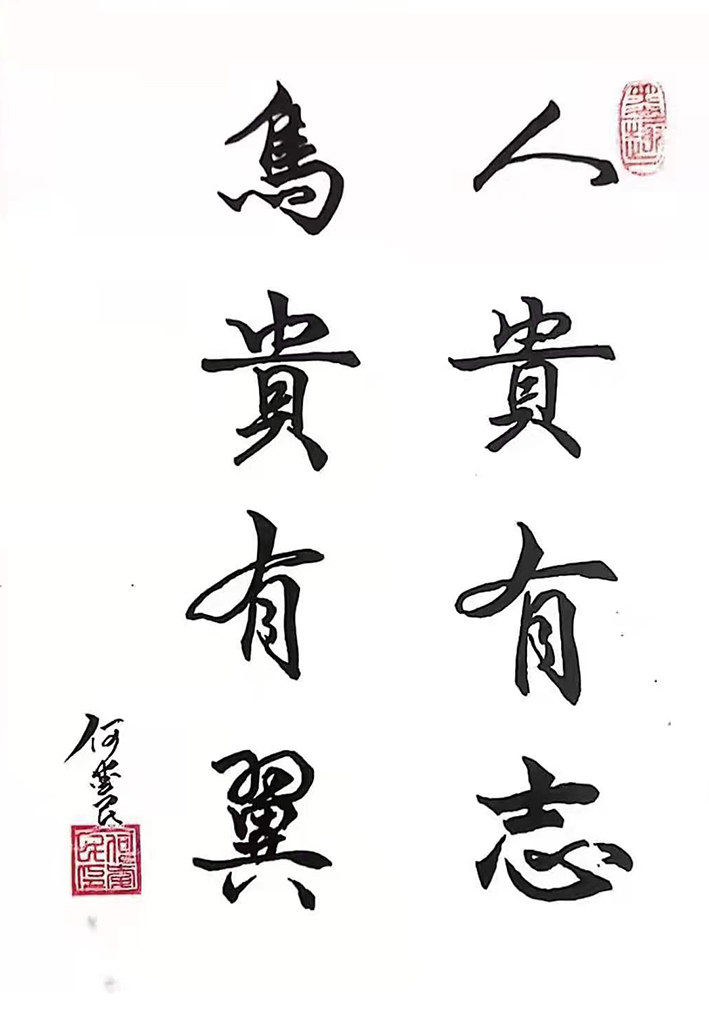 人貴有志
鳥貴有翼